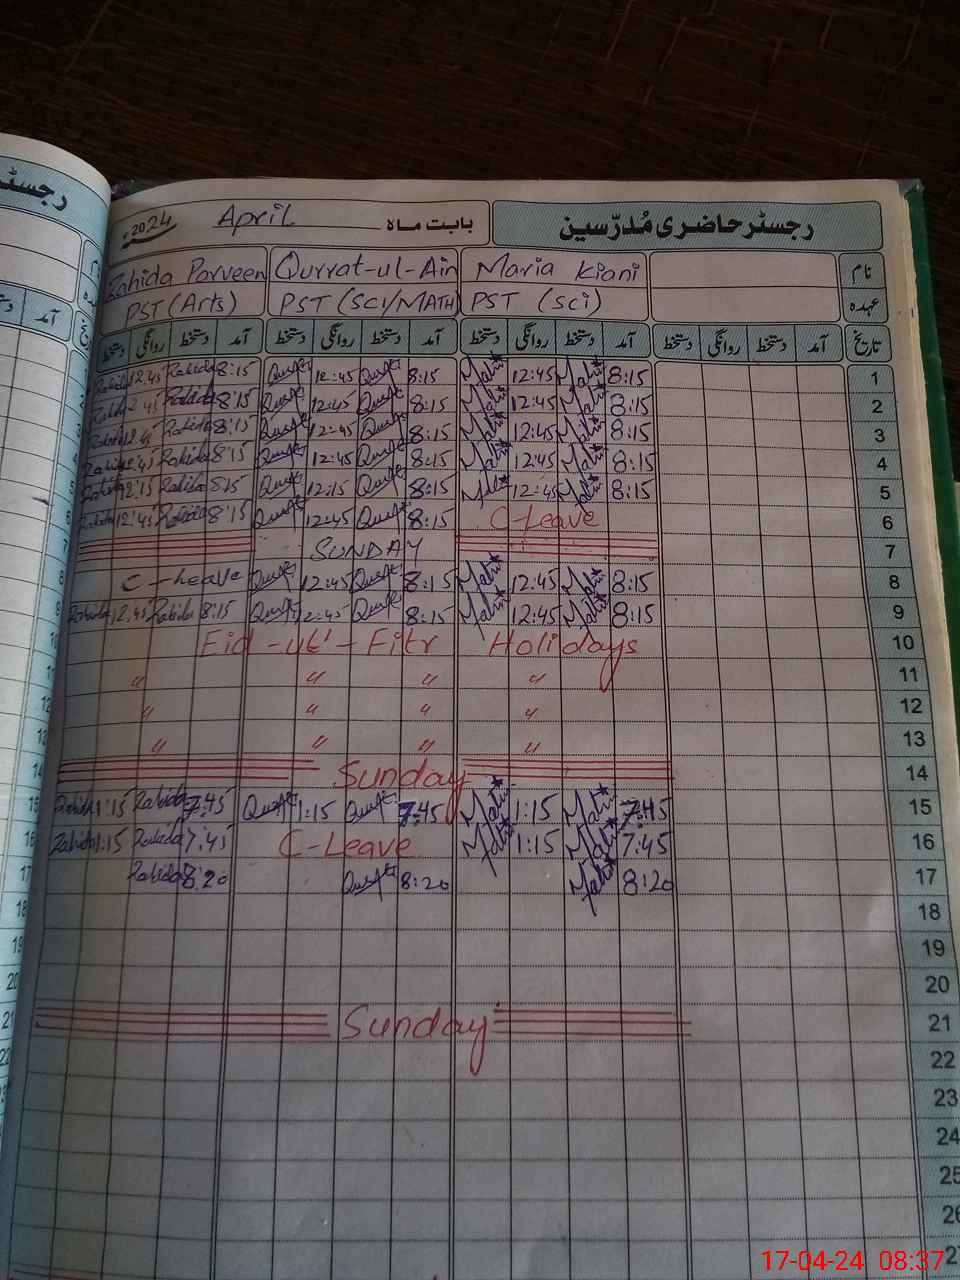 رجسٹر حاضری مُدرّسین بابت ماہ April 2024
نام Maria Kiani Qurrat-ul-Ain Zahida Parveen
عہدہ PST (Sci) PST (SCI/MATH) PST (Arts)
تاریخ آمد دستخط روانگی دستخط آمد دستخط روانگی دستخط آمد دستخط روانگی دستخط آمد دستخط روانگی دستخط
Zahida 12:45 Zahida 8:15 12:45 8:15 12:45 8:15 1
Zahida 12:45 Zahida 8:15 12:45 8:15 12:45 8:15 2
Zahida 12:45 Zahida 8:15 12:45 8:15 12:45 8:15 3
Zahida 12:45 Zahida 8:15 12:45 8:15 12:45 8:15 4
Zahida 12:15 Zahida 8:15 12:15 8:15 12:45 8:15 5
Zahida 12:45 Zahida 8:15 12:45 8:15 C-Leave 6
SUNDAY 7
C-Leave 12:45 8:15 12:45 8:15 8
Zahida 12:45 Zahida 8:15 12:45 8:15 12:45 8:15 9
Eid-ut-Fitr Holidays 10
" " " " 11
" " " " 12
" " " " 13
Sunday 14
Zahida 1:15 Zahida 7:45 1:15 7:45 1:15 7:45 15
Zahida 1:15 Zahida 7:45 C-Leave 1:15 7:45 16
Zahida 8:20 8:20 8:20 17
18
19
20
Sunday 21
22
23
24
25
26
27
17-04-24 08:37